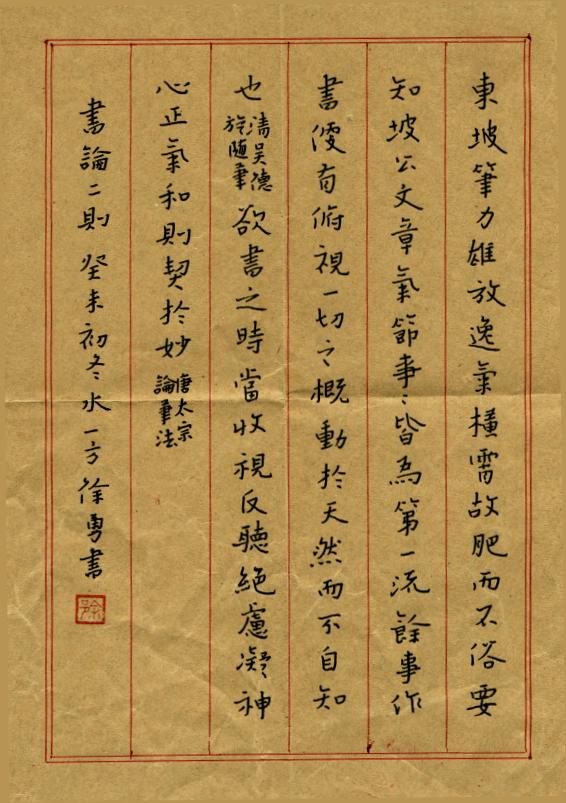 東坡筆力雄放逸氣橫霄故肥而不俗要
知坡公文章氣節事〻皆為第一流餘事作
書便有俯視一切之概動於天然而不自知
也
清吴德
旋随筆
欲書之時當收視反聽絕慮凝神
心正氣和則契於妙
唐太宗
論筆法
書論二則癸未初冬水一方徐勇書
徐